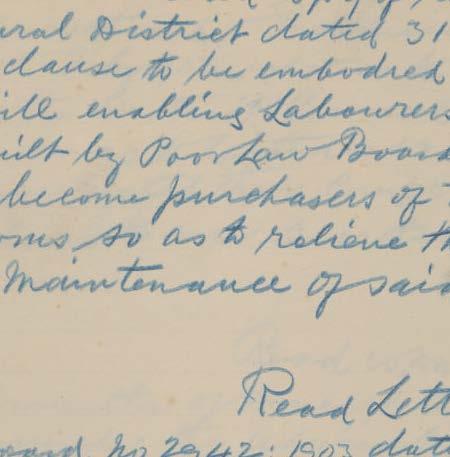 ural District dated 31
clause to be embodied
ill enabling Labourers
uilt by Poor Law Board
become purchasers of
oms so as to relieve th
Maintenance of said
Read Lett
oard, No 2942: 1903 dat